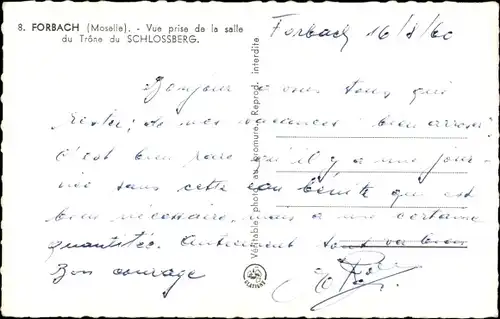 8. FORBACH (Moselle). - Vue prise de la salle
du Trône du SCHLOSSBERG.
Forbach 16/8/60
Bonjour à vous tous qui
restez; de nos vacances bien arrosées
C'est bien rare qu'il y a une jour-
née sans cette eau bénite qui est
bien nécessaire, mais à une certaine
quantitée. Autrement tout va bien
Bon courage
Véritable photo au bromure. Reprod. interdite